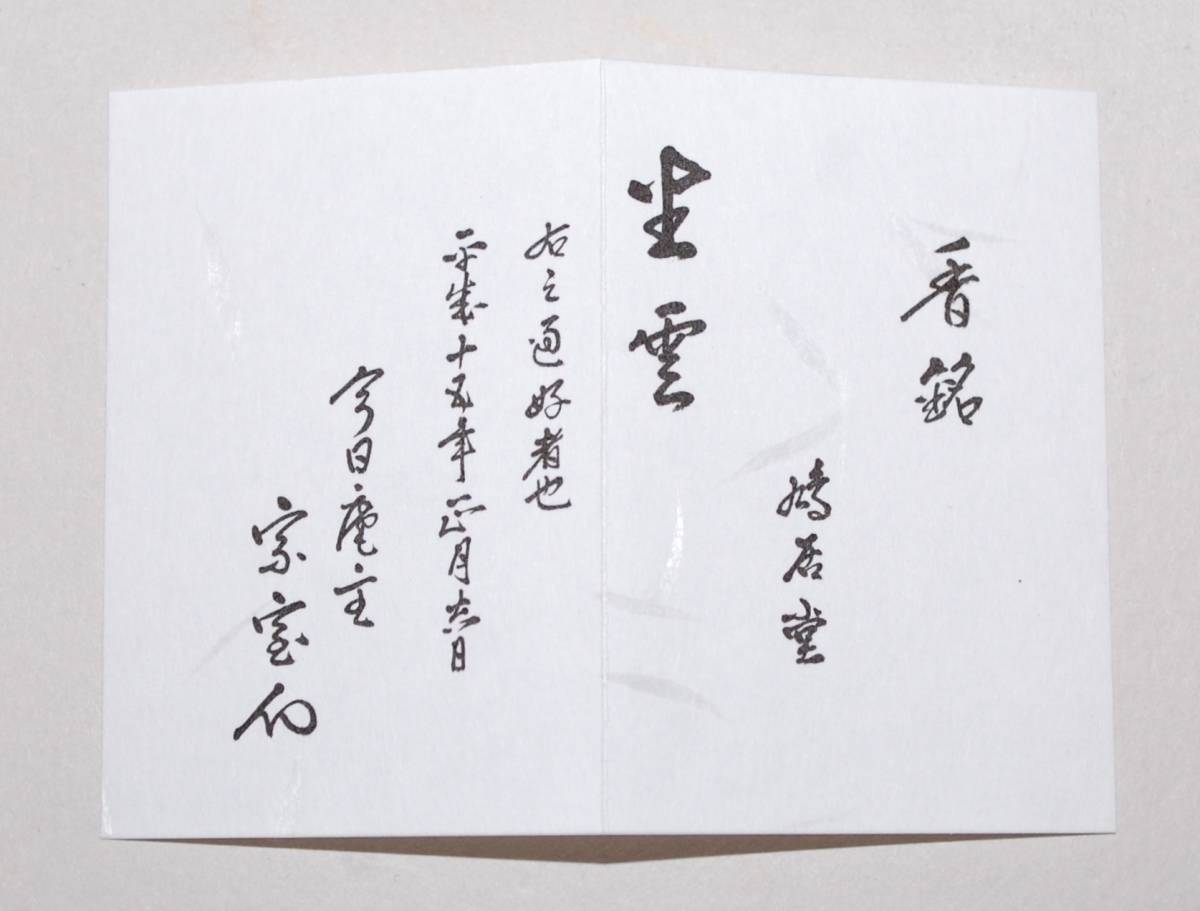 香銘
鳩居堂
坐雲
右之通好者也
平成十五年正月吉日
今日庵主
宗室